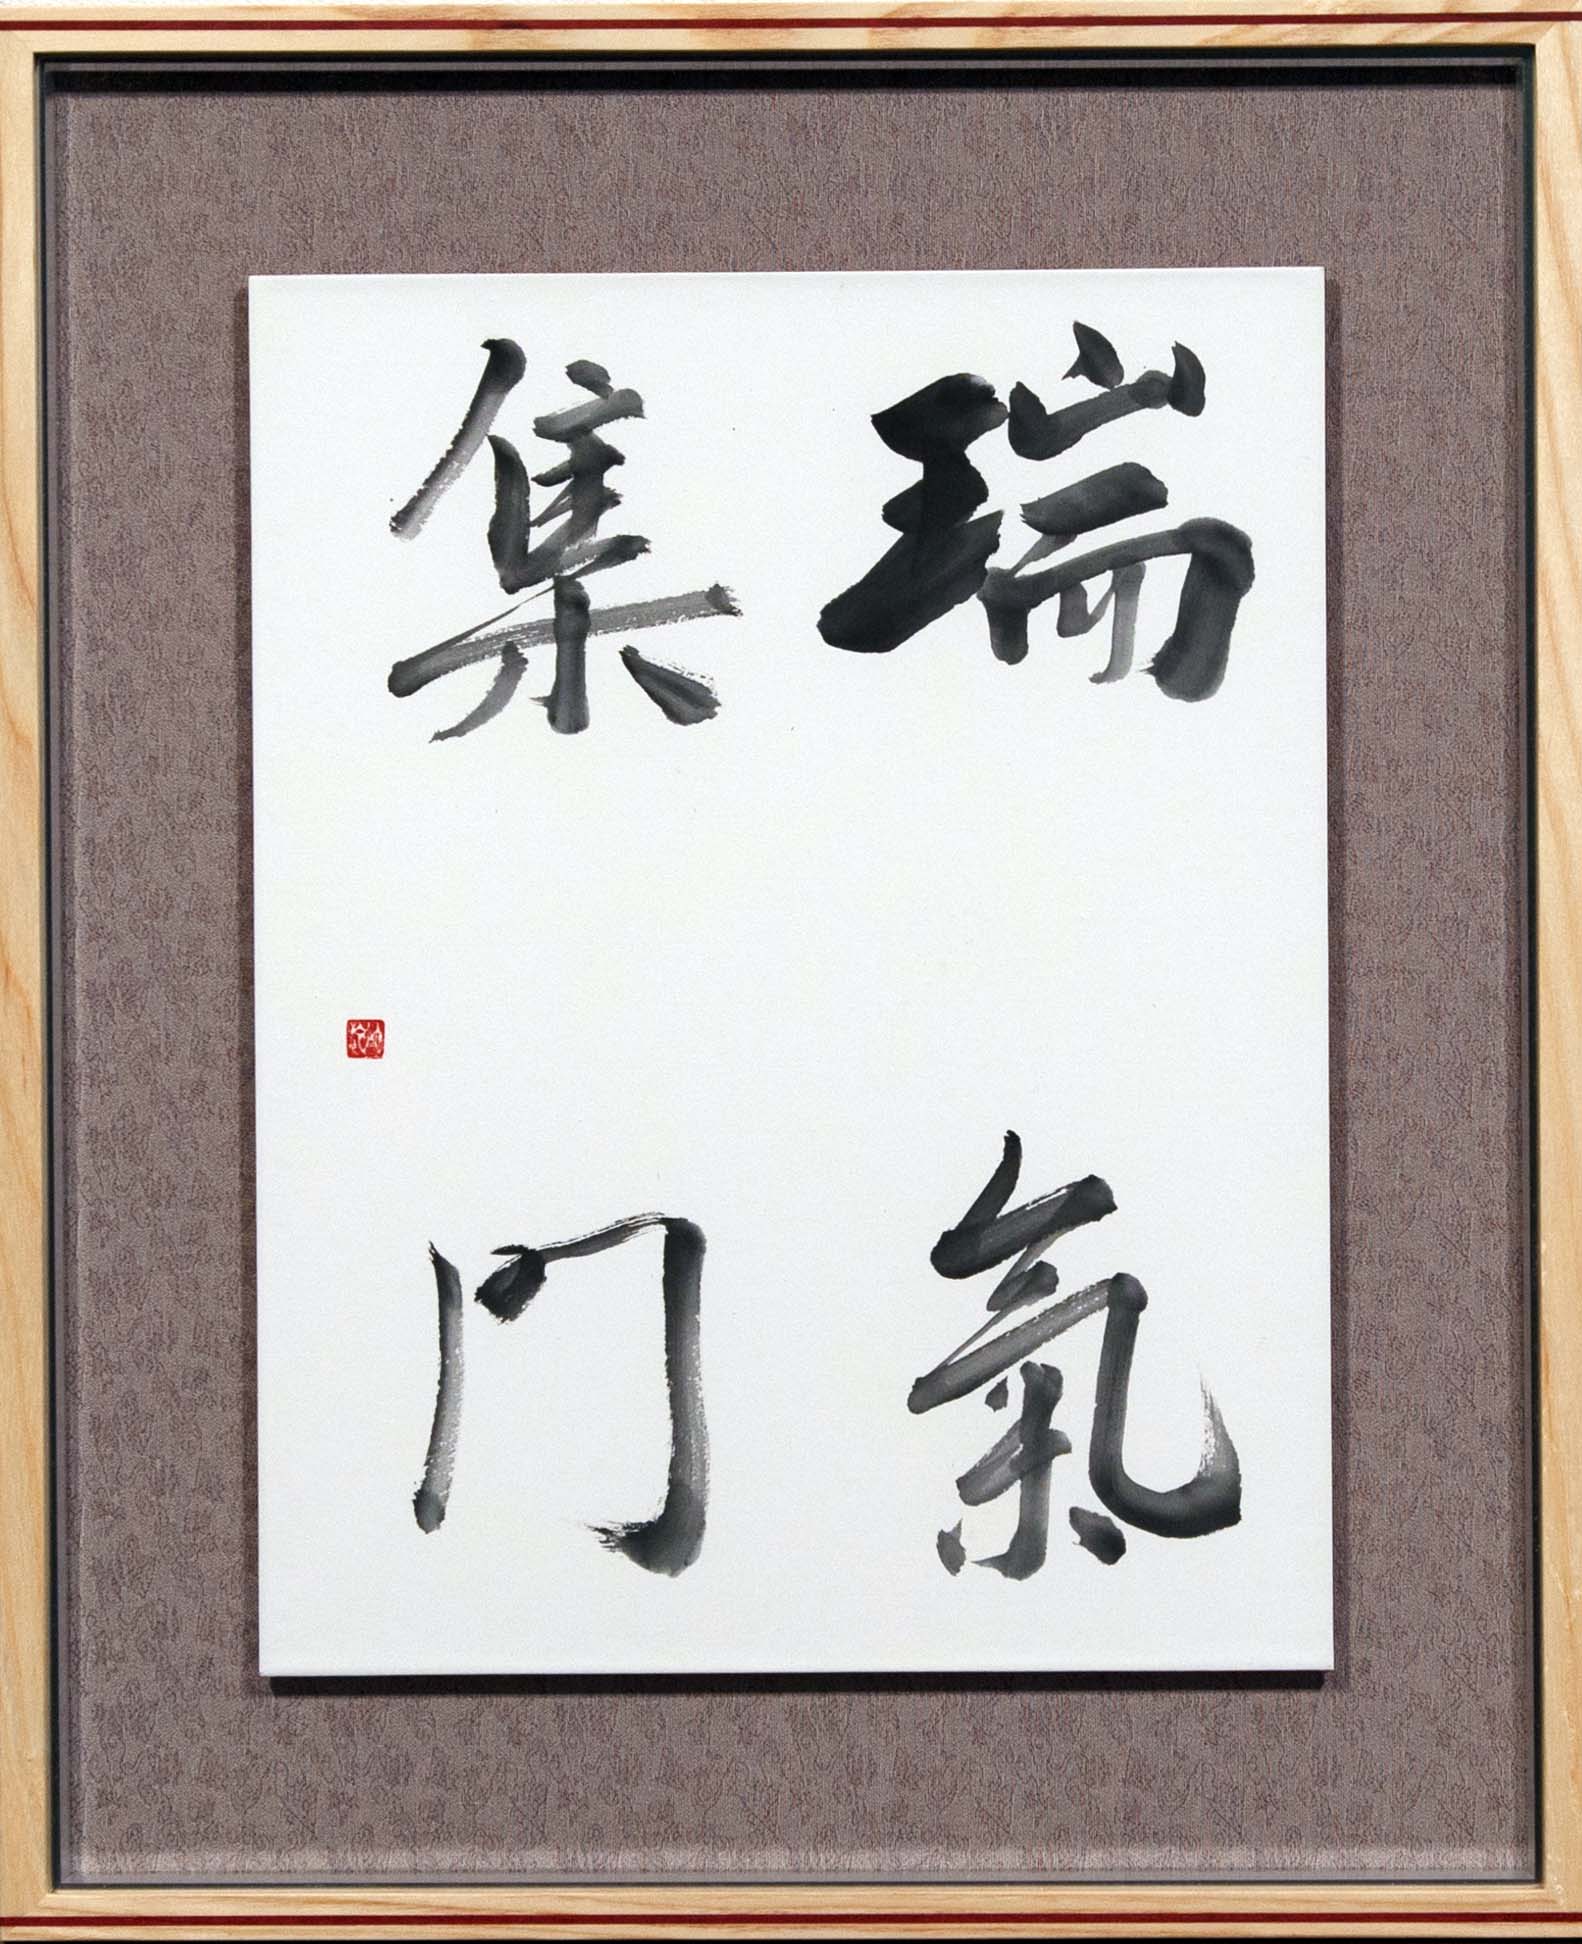 瑞氣
集门